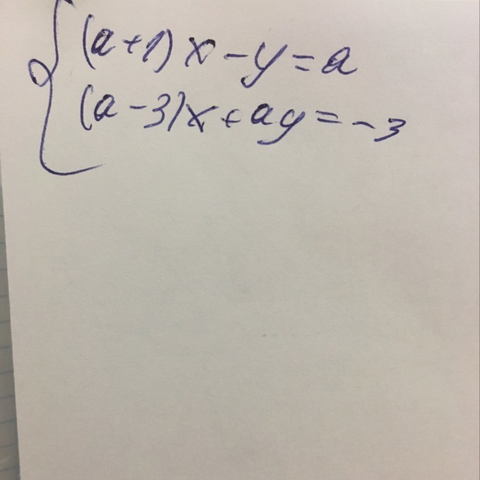 (a+1)x-y=a
(a-3)x+ay=-3